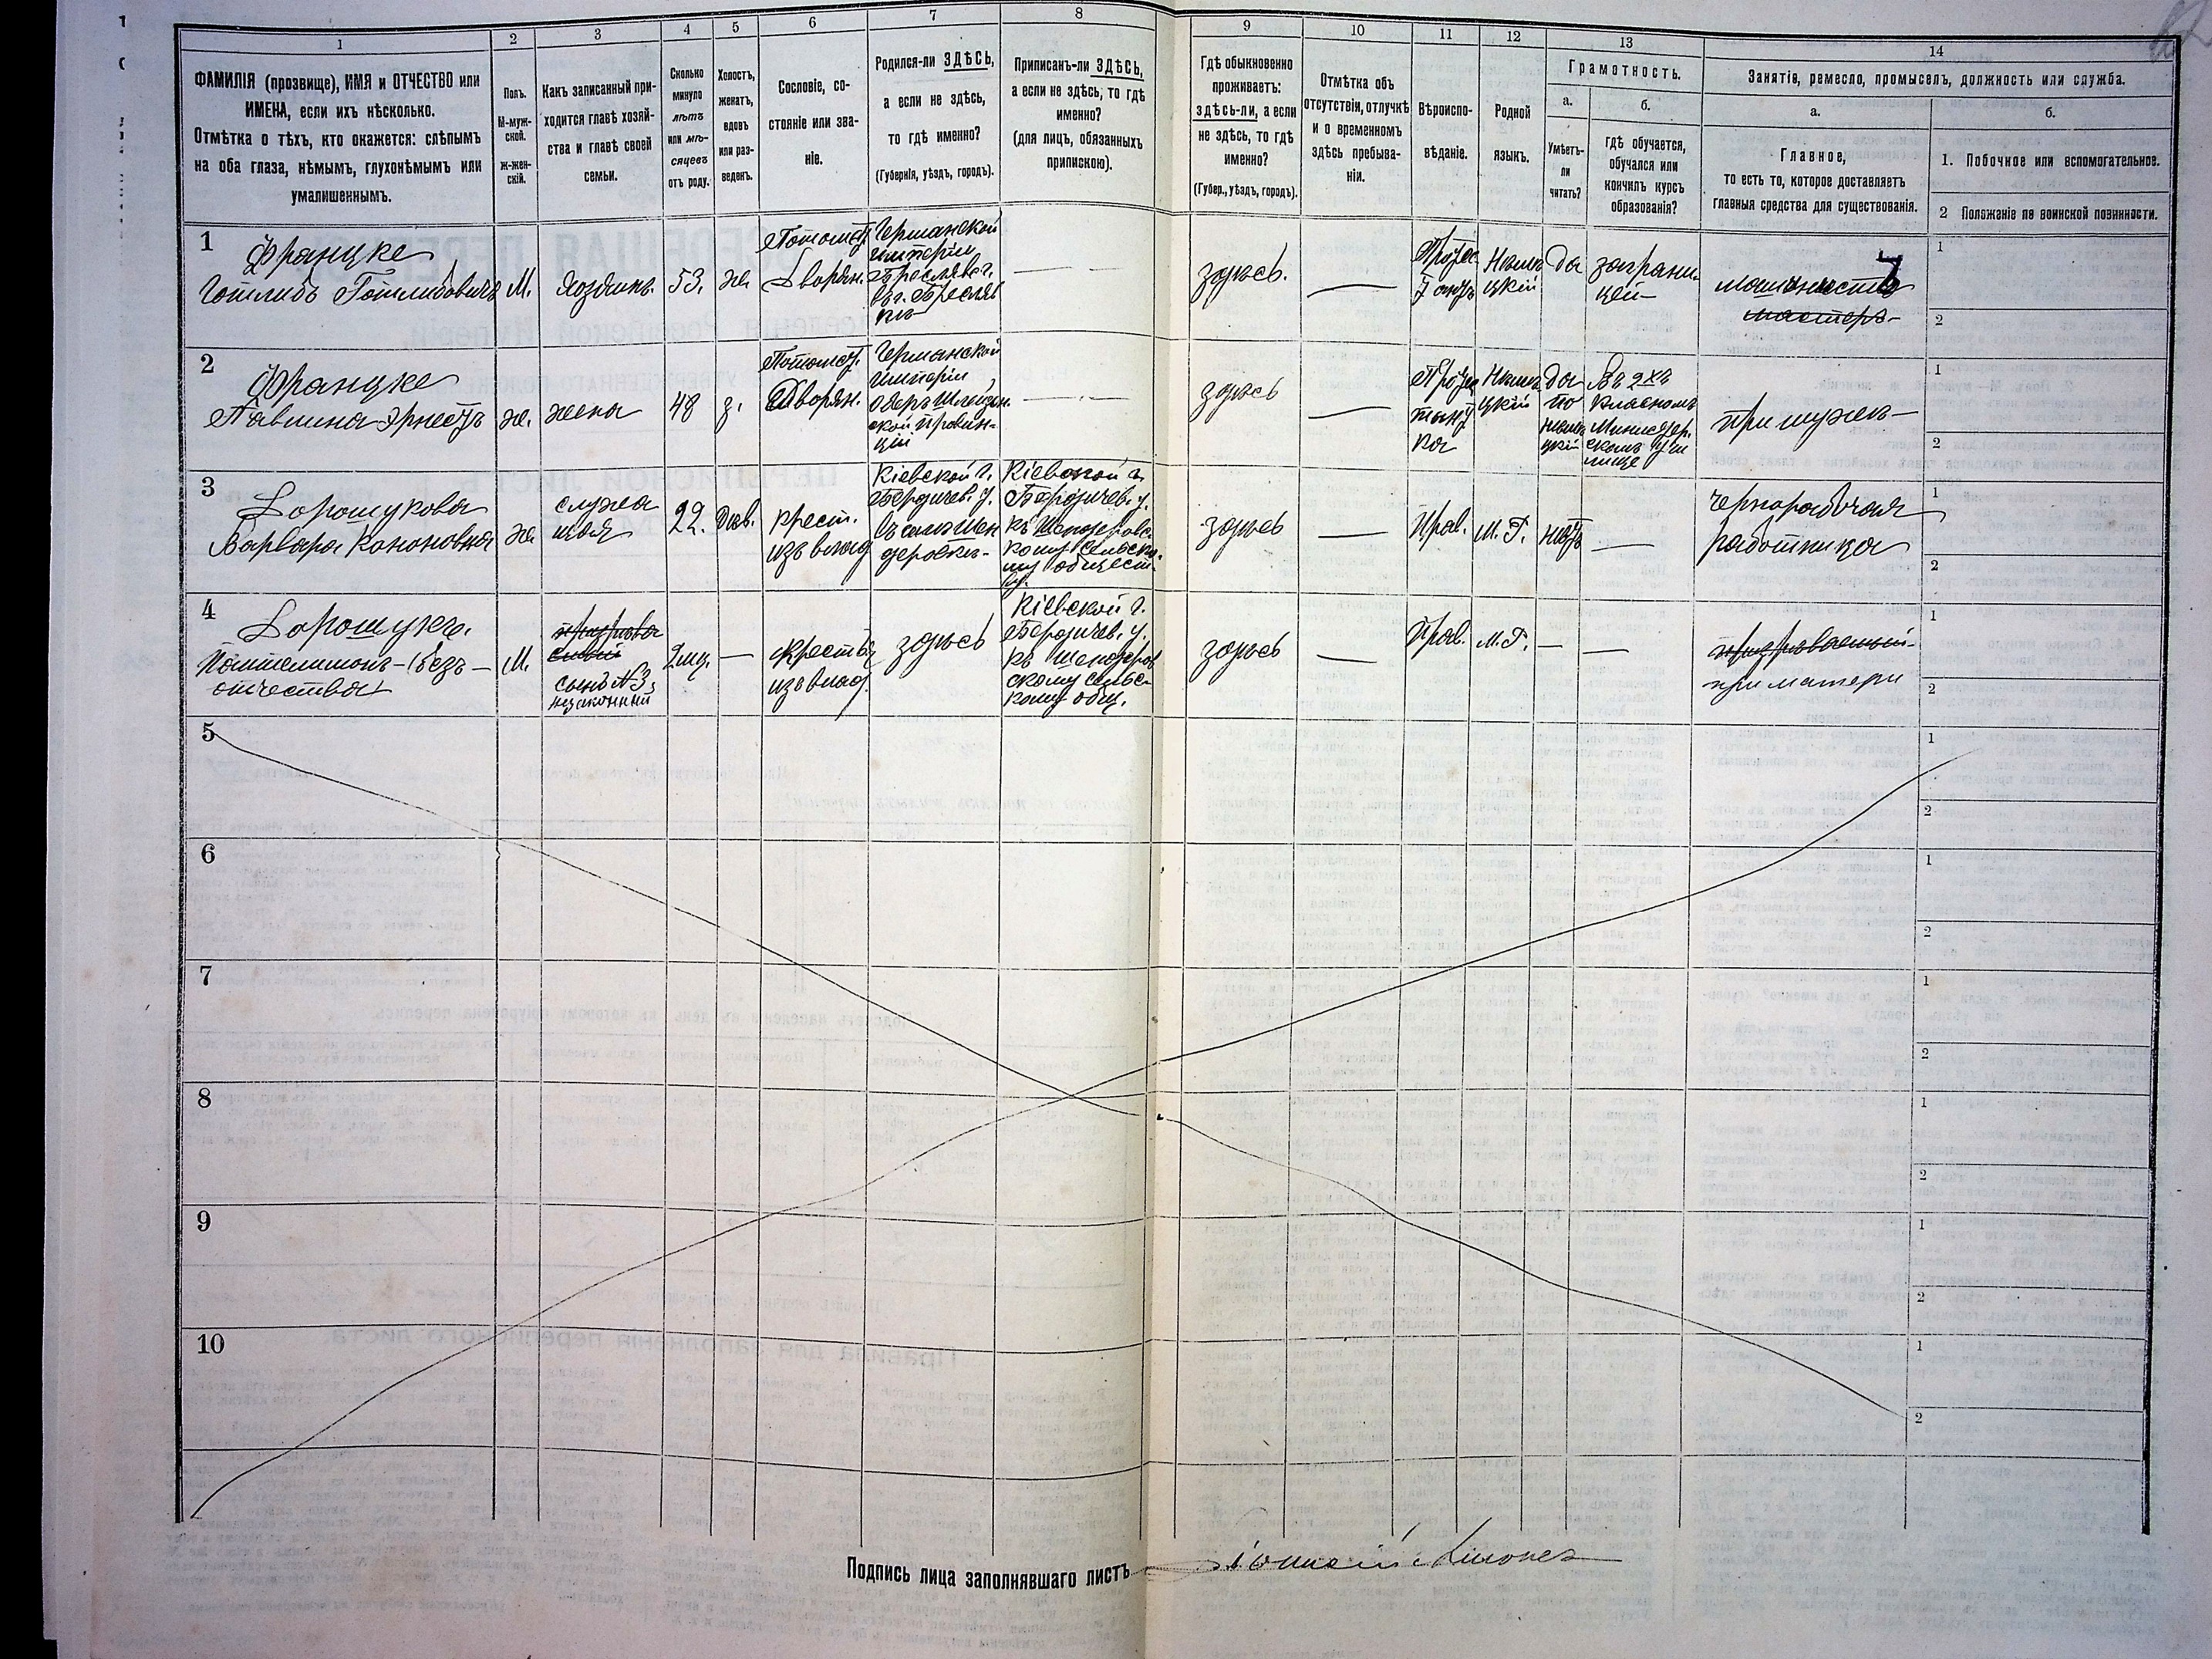 1
2
3
4
5
6
7
8
9
10
11
12
13
14
ФАМИЛІЯ (прозвище), ИМЯ и ОТЧЕСТВО или
ИМЕНА, если ихъ нѣсколько.
Отмѣтка о тѣхъ, кто окажется: слѣпымъ
на оба глаза, нѣмымъ, глухонѣмымъ или
умалишеннымъ.
Полъ.
М-муж-
ской.
Ж-жен-
скій.
Какъ записанный при-
ходится главѣ хозяй-
ства и главѣ своей
семьи.
Сколько
минуло
лѣтъ
или мѣ-
сяцевъ
отъ роду.
Холостъ,
женатъ,
вдовъ
или раз-
веденъ.
Сословіе, со-
стояніе или зва-
ніе.
Родился-ли ЗДѢСЬ,
а если не здѣсь,
то гдѣ именно?
(Губернія, уѣздъ, городъ).
Приписанъ-ли ЗДѢСЬ,
а если не здѣсь, то гдѣ
именно?
(для лицъ, обязанныхъ
припискою).
Гдѣ обыкновенно
проживаетъ:
ЗДѢСЬ-ли, а если
не здѣсь, то гдѣ
именно?
(Губер., уѣздъ, городъ).
Отмѣтка объ
отсутствіи, отлучкѣ
и о временномъ
здѣсь пребыва-
ніи.
Вѣроиспо-
вѣданіе.
Родной
языкъ.
Грамотность.
а.
Умѣетъ-
ли
читать?
б.
гдѣ обучается,
обучался или
кончилъ курсъ
образованія?
Занятіе, ремесло, промыселъ, должность или служба.
а.
Главное,
то есть то, которое доставляетъ
главныя средства для существованія.
б.
1. Побочное или вспомогательное.
2 Положеніе по воинской повинности.
1
Францке
Готлибъ Готлибовичъ
М.
Хозяинъ.
53.
же.
Потомст.
Дворян.
Германской
Имперіи
Бреславс.
въ г. Бреслав
лѣ
здѣсь.
Протес
тантъ
Нѣме
цкій
да
заграни-
цей
машинистъ
мастеръ
7
1
2
2
Францке
Павлина Эрнестъ
же.
жена
48
з.
Потомст.
Дворян.
Германской
Имперіи,
Оберъ Шлезен-
ской провин-
ціи
здѣсь
Протес
тант
ка
Нѣме
цкій
да
по
нѣме
цкій
Въ 2хъ
класномъ
Министер.
скомъ учи
лище
при мужѣ
1
2
3
Дорошукова
Варвара Кононовна
же
служа
щая
22.
Дѣв.
крест.
изъ влад
Кіевской г.
Бердичев. у.
въ селѣ Шен
деровкѣ
Кіевской г.
Бердичев. у.
къ Шендеровс-
кому сельско-
му обществ
у.
здѣсь
Прав.
М. Г.
нѣтъ
Чернорабочая
работница
1
2
4
Дорошукъ.
Пантелимонъ (безъ
отчества)
М.
сынъ №3,
незаконный
2 мц.
крестья
изъ влад.
здѣсь
Кіевской г.
Бердичев. у.
къ Шендеров
скому сельс-
кому общ.
здѣсь
Прав.
М. Г.
при матери
1
2
5
1
2
6
1
2
7
1
2
8
1
2
9
1
2
10
1
2
Подпись лица заполнявшаго листъ